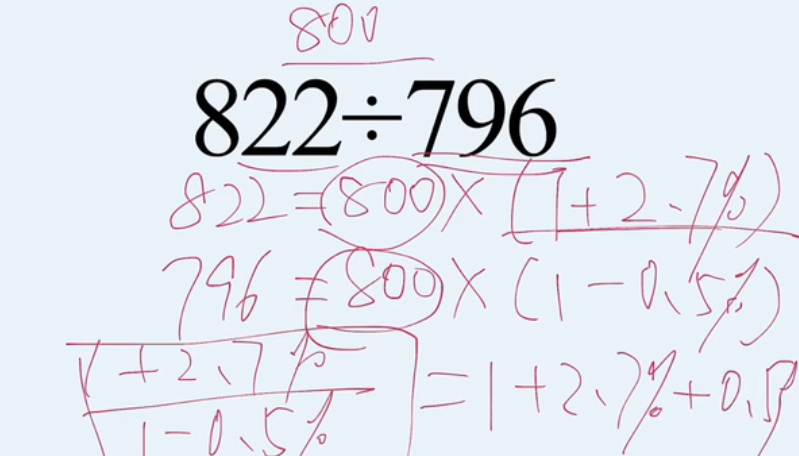 800
822÷796
822=800×(1+2.7%)
796=800×(1-0.5%)
1+2.7%
1-0.5%
=1+2.7%+0.5